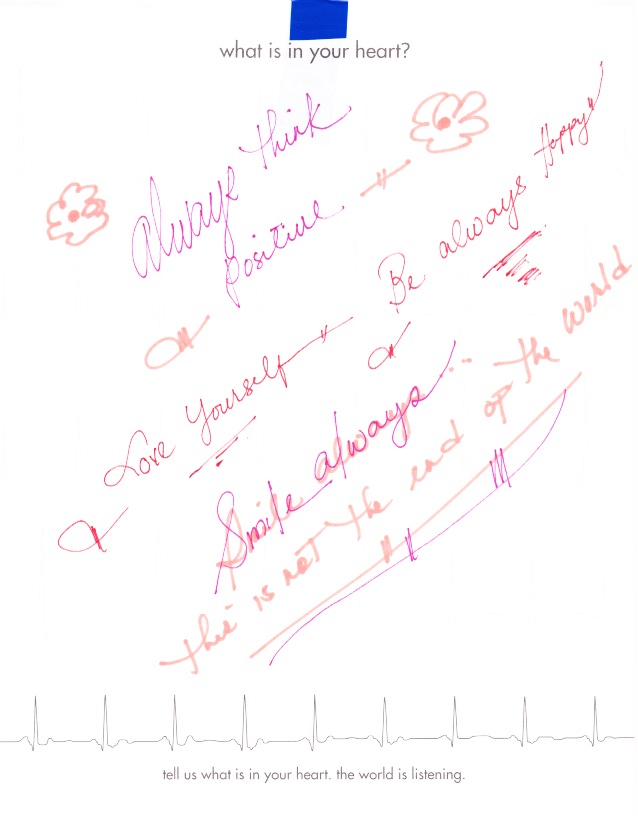 what is in your heart?
always think
positive.
Be always Happy"
Love Yourself
Smile always...
this is not the end op the world
tell us what is in your heart. the world is listening.